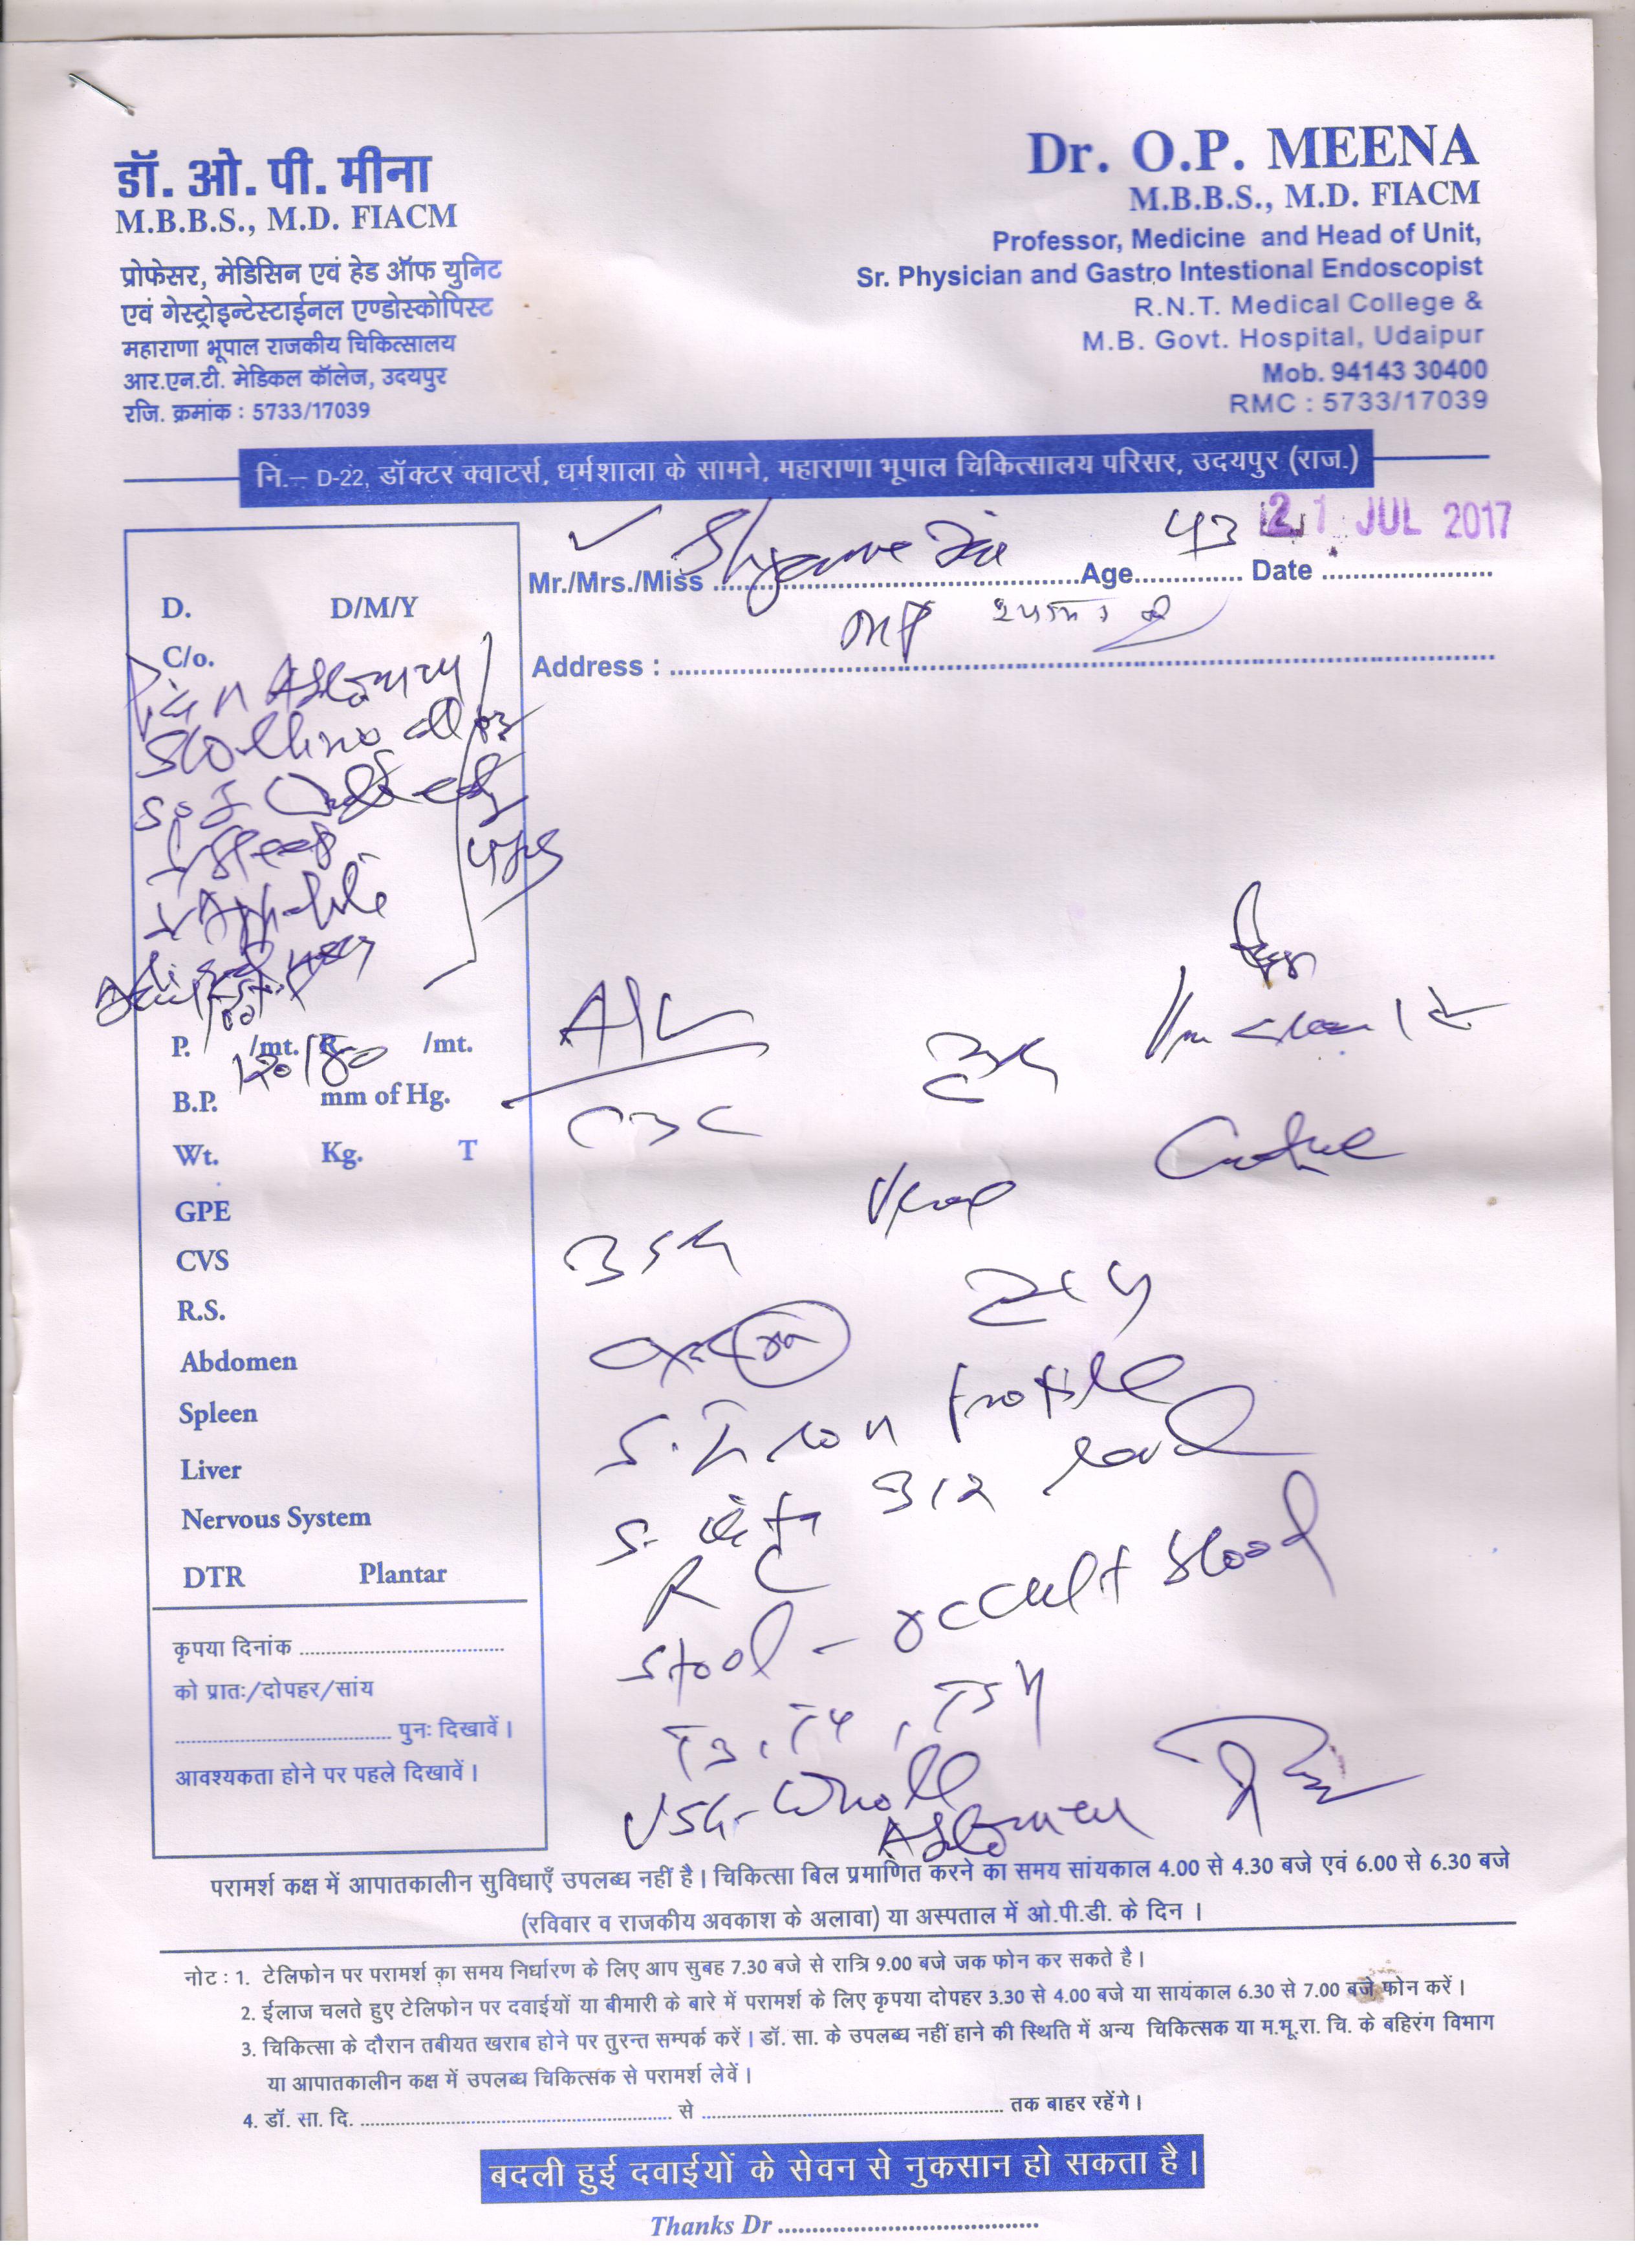 डॉ. ओ. पी. मीना
M.B.B.S., M.D. FIACM
प्रोफेसर, मेडिसिन एवं हेड ऑफ युनिट
एवं गेस्ट्रोइन्टेस्टाईनल एण्डोस्कोपिस्ट
महाराणा भूपाल राजकीय चिकित्सालय
आर.एन.टी. मेडिकल कॉलेज, उदयपुर
रजि. क्रमांक : 5733/17039
Dr. O.P. MEENA
M.B.B.S., M.D. FIACM
Professor, Medicine and Head of Unit,
Sr. Physician and Gastro Intestional Endoscopist
R.N.T. Medical College &
M.B. Govt. Hospital, Udaipur
Mob. 94143 30400
RMC : 5733/17039
नि.– D-22, डॉक्टर क्वाटर्स, धर्मशाला के सामने, महाराणा भूपाल चिकित्सालय परिसर, उदयपुर (राज.)
21 JUL 2017
Mr./Mrs./Miss Age 43 Date
Address :
D. D/M/Y
C/o.
P. /mt. R. /mt.
120/80
B.P. mm of Hg.
Wt. Kg. T
GPE
CVS
R.S.
Abdomen
Spleen
Liver
Nervous System
DTR Plantar
कृपया दिनांक
को प्रातः/दोपहर/सांय
पुनः दिखावें।
आवश्यकता होने पर पहले दिखावें।
CBC
S. Iron profile
S. Vit B12 level
Stool - occult blood
T3, T4, TSH
USG - Whole
Abdomen
परामर्श कक्ष में आपातकालीन सुविधाएँ उपलब्ध नहीं है। चिकित्सा बिल प्रमाणित करने का समय सांयकाल 4.00 से 4.30 बजे एवं 6.00 से 6.30 बजे
(रविवार व राजकीय अवकाश के अलावा) या अस्पताल में ओ.पी.डी. के दिन ।
नोट : 1. टेलिफोन पर परामर्श का समय निर्धारण के लिए आप सुबह 7.30 बजे से रात्रि 9.00 बजे जक फोन कर सकते है।
2. ईलाज चलते हुए टेलिफोन पर दवाईयों या बीमारी के बारे में परामर्श के लिए कृपया दोपहर 3.30 से 4.00 बजे या सायंकाल 6.30 से 7.00 बजे फोन करें।
3. चिकित्सा के दौरान तबीयत खराब होने पर तुरन्त सम्पर्क करें। डॉ. सा. के उपलब्ध नहीं हाने की स्थिति में अन्य चिकित्सक या म.भू.रा. चि. के बहिरंग विमाग
या आपातकालीन कक्ष में उपलब्ध चिकित्सक से परामर्श लेवें।
4. डॉ. सा. दि. से तक बाहर रहेंगे।
बदली हुई दवाईयों के सेवन से नुकसान हो सकता है।
Thanks Dr